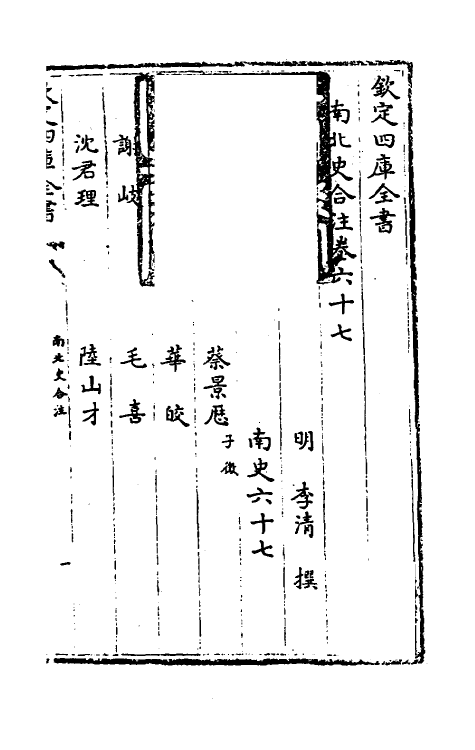 欽定四庫全書
南北史合注卷六十七
明 李清 撰
南史六十七
蔡景歷 子徵
華皎
謝岐 毛喜
沈君理 陸山才
四庫全書
南北史合注
一